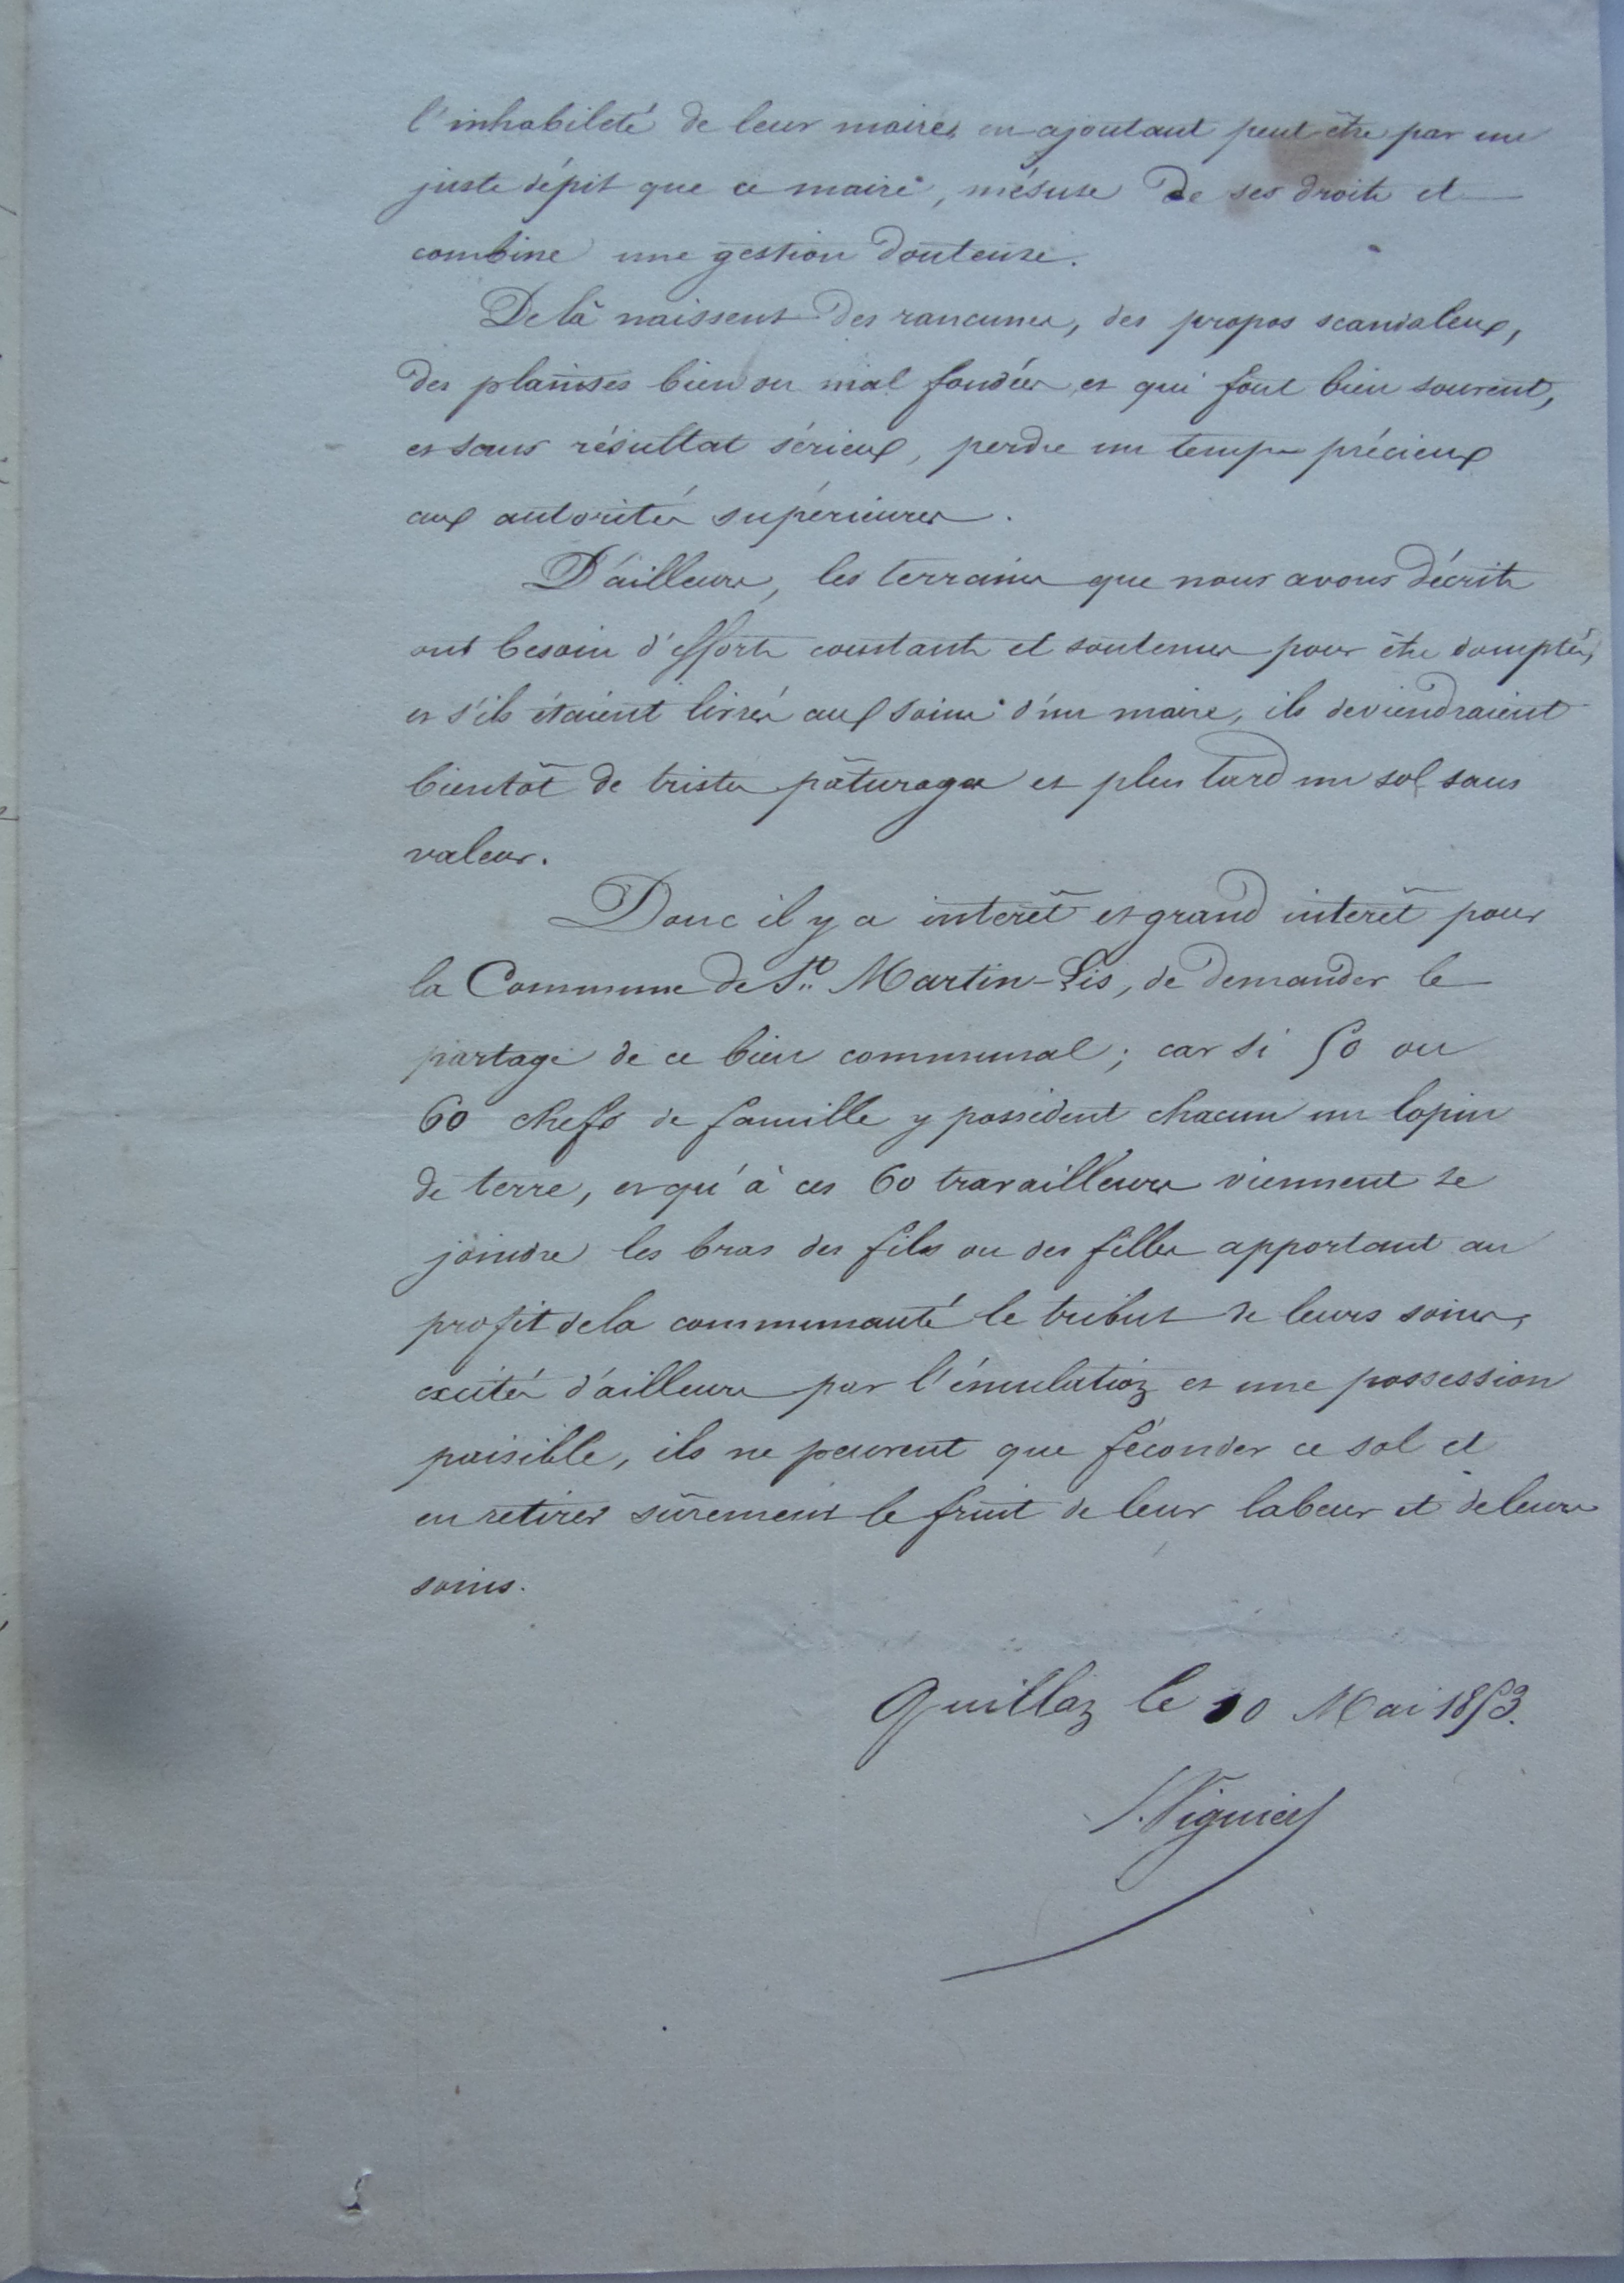 l'inhabileté de leur maire, en ajoutant peut être par un
juste dépit que ce maire, mésuse de ses droits et
combine une gestion douteuse.
De là naissent des rancunes, des propos scandaleux,
des plaintes bien ou mal fondées et qui font bien souvent,
et sans résultat sérieux, perdre un temps précieux
aux autorités supérieures.
D'ailleurs, les terrains que nous avons décrits
ont besoin d'efforts constants et soutenus pour être domptés,
et s'ils étaient livrés aux soins d'un maire, ils deviendraient
bientôt de tristes pâturages et plus tard un sol sans
valeur.
Donc il y a interêt et grand interêt pour
la Commune de St. Martin-Lis, de demander le
partage de ce bien communal; car si 50 ou
60 chefs de famille y possèdent chacun un lopin
de terre, et qu'à ces 60 travailleurs viennent se
joindre les bras des fils ou des filles apportant au
profit de la communauté le tribut de leurs soins,
excités d'ailleurs par l'émulation et une possession
paisible, ils ne peuvent que féconder ce sol et
en retirer sûrement le fruit de leur labeur et de leurs
soins.
Quillan le 10 Mai 1853.
Viguier